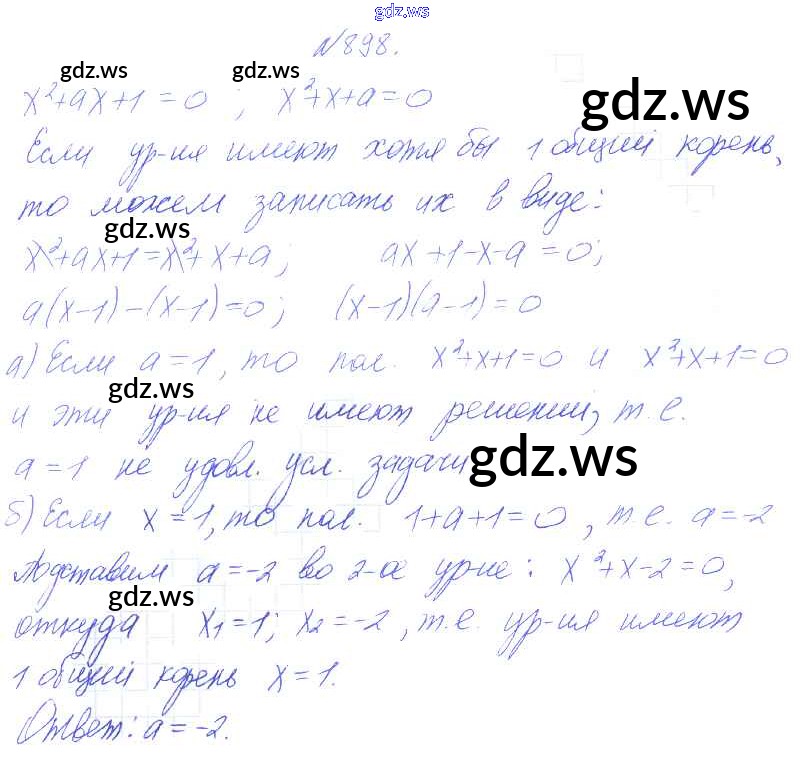 gdz.ws
№898.
gdz.ws gdz.ws
x²+ax+1=0 ; x²+x+a=0
gdz.ws
Если ур-ия имеют хотя бы 1 общий корень,
то можем записать их в виде:
gdz.ws
x²+ax+1=x²+x+a; ax+1-x-a=0;
a(x-1)-(x-1)=0; (x-1)(a-1)=0
а) Если a=1, то пол. x²+x+1=0 и x²+x+1=0
gdz.ws
и эти ур-ия не имеют решений, т.е.
a=1 не удовл. усл. задачи
gdz.ws
б) Если x=1, то пол. 1+a+1=0, т.е. a=-2
Подставим a=-2 во 2-ое ур-ие: x²+x-2=0,
gdz.ws
откуда x₁=1; x₂=-2, т.е. ур-ия имеют
1 общий корень x=1.
Ответ: a=-2.